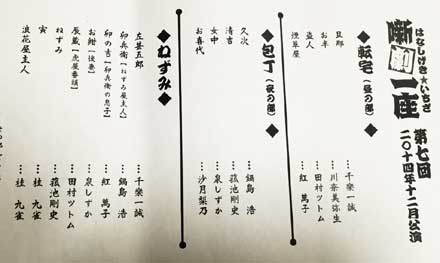 はなしげき★いちざ
噺劇一座
第七回
二〇十四年十二月公演
◆転宅(昼の部)◆
旦那 …千樂一誠
お半 …川奈美弥生
盗人 …田村ツトム
煙草屋 …紅 萬子
◆包丁(夜の部)◆
久次 …鍋島 浩
清吉 …菰池剛史
女中 …泉しずか
お喜代 …沙月梨乃
◆ねずみ◆
左甚五郎 …千樂一誠
卯兵衛【ねずみ屋主人】 …鍋島 浩
卯の吉【卯兵衛の息子】 …紅 萬子
お紺【後妻】 …泉しずか
辰蔵【虎屋番頭】 …菰池剛史
ねずみ …田村ツトム
寅 …桂 九雀
浪花屋主人 …桂 九雀